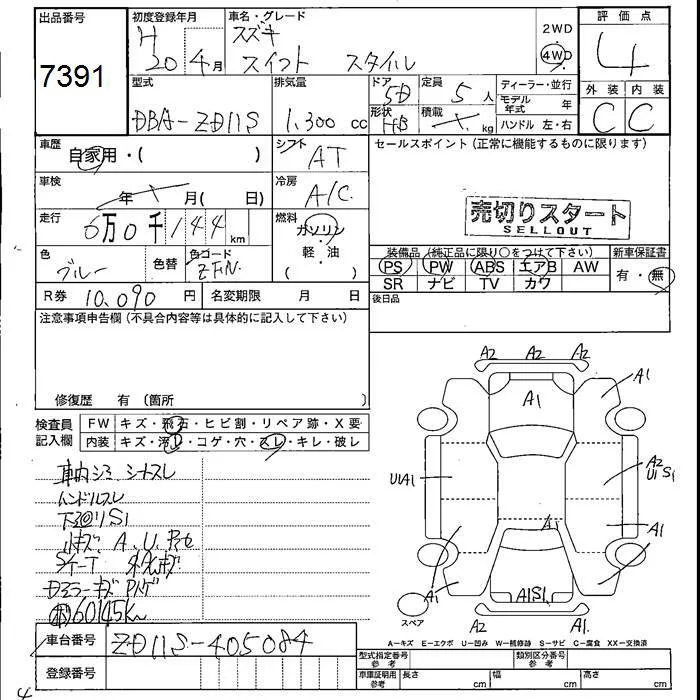 出品番号
7391
初度登録年月
H 20 4月
車名・グレード
スズキ
スイフト スタイル
2WD
4WD
評価点
4
外装 内装
C C
型式
DBA-ZD11S
排気量
1,300 cc
ドア
5D
形状
HB
定員
5人
積載
kg
ディーラー・並行
モデル年式 年
ハンドル 左・右
車歴
自家用・( )
シフト
AT
セールスポイント(正常に機能するものに限ります)
車検
年 月( 日)
冷房
A/C
売切りスタート
SELLOUT
走行
6万0千144 km
燃料
ガソリン
・
軽・油
( )
装備品(純正品に限り○をつけて下さい)
新車保証書
PS PW ABS エアB AW
有・無
SR ナビ TV カワ
色
ブルー
色替
色コード
ZFN
R券 10,090 円
名変期限 月 日
後日品
注意事項申告欄(不具合内容等は具体的に記入して下さい)
修復歴 有(箇所 )
検査員
記入欄
FW キズ・飛石・ヒビ割・リペア跡・X要
内装 キズ・浮し・コゲ・穴・スレ・キレ・破レ
車内シミ シートスレ
ハンドルスレ
下回リS1
小キズ A、U、P
60145Km
A2 A2 A2
A1
A1
U1A1
A2
U1 S1
A1
A1
A1
A1
A1S1
A2 A1
スペア
A－キズ E－エクボ U－凹み W－補修跡 S－サビ C－腐食 XX－交換済
車台番号
ZD11S-405084
登録番号
型式指定番号
参考
類別区分番号
参考
車庫証明用
参考
長さ cm 幅 cm 高さ cm